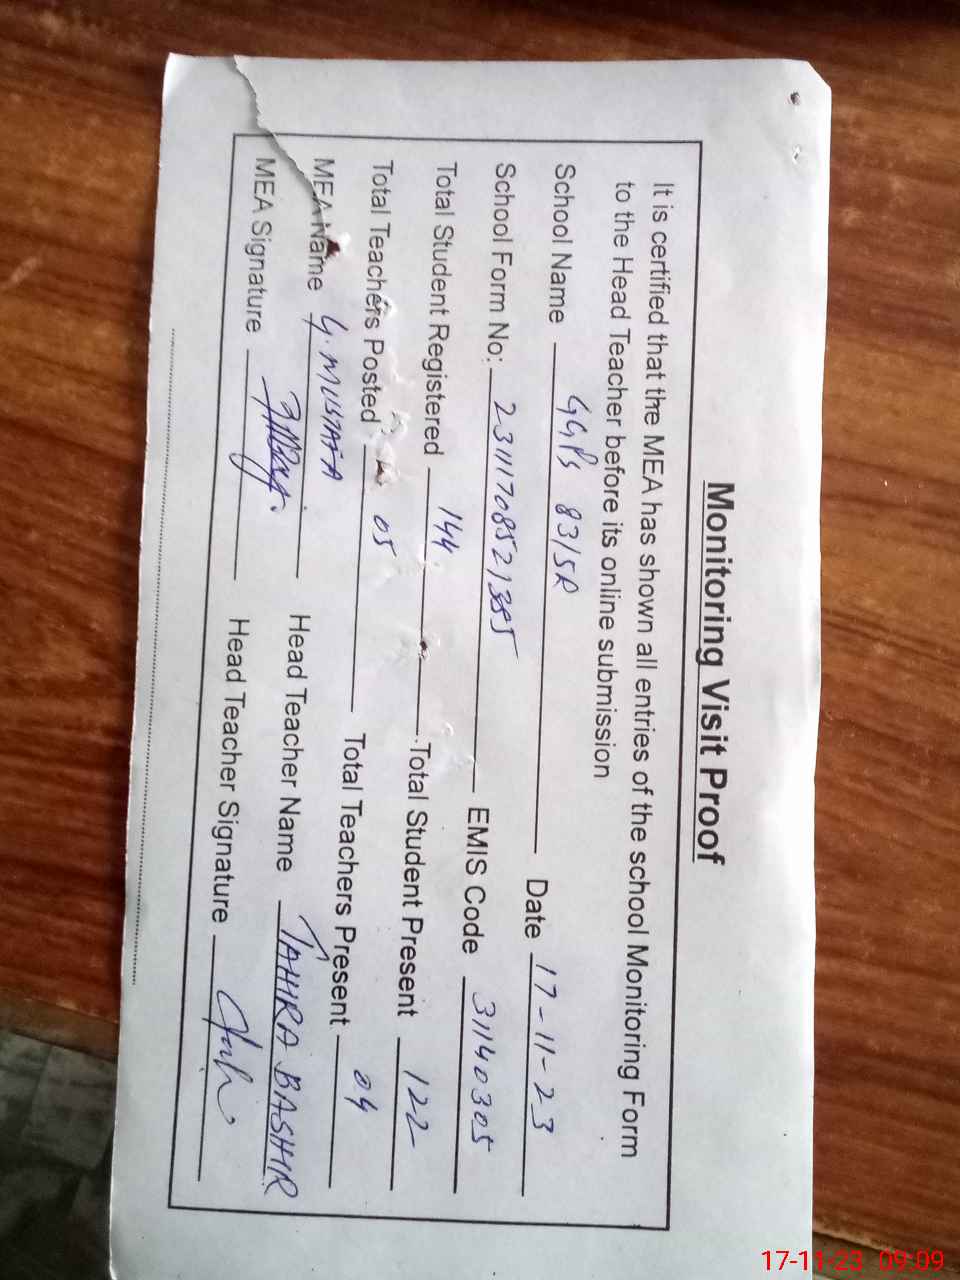 Monitoring Visit Proof
It is certified that the MEA has shown all entries of the school Monitoring Form
to the Head Teacher before its online submission
School Name GGPS 83/5R Date 17-11-23
School Form No: 2311170852,1385 EMIS Code 31140305
Total Student Registered 144 Total Student Present 122
Total Teachers Posted 05 Total Teachers Present 04
MEA Name G. MUSTAFA Head Teacher Name TAHIRA BASHIR
MEA Signature Head Teacher Signature
17-11-23 09:09